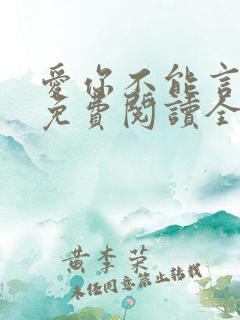 愛你不能言
免費閱讀全
黃李荣
未经同意禁止转载